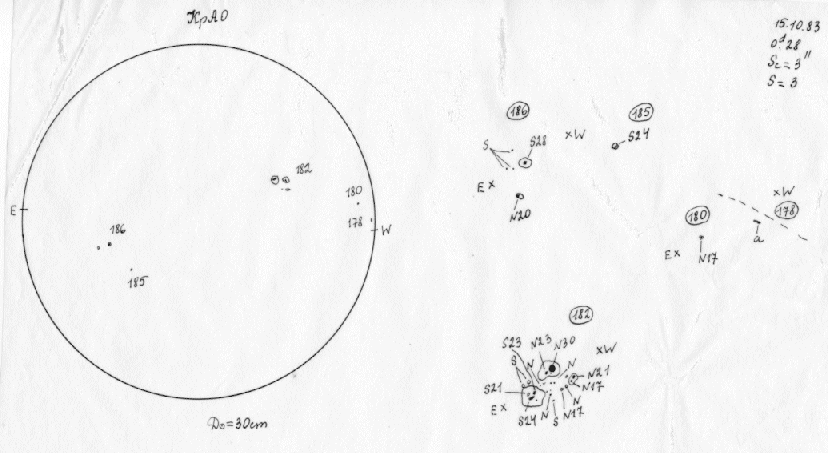 КрАО
15.10.83
0.ᵈ28
S_c = 3"
S = 3
186
185
S
S28
×W
S24
E×
N20
182
180
178
E
W
186
185
×W
180
178
a
E×
N17
182
S23
N23
N30
S
N
N
×W
S21
N21
N17
E×
S24
N
S
N17
N
D₀=30cm